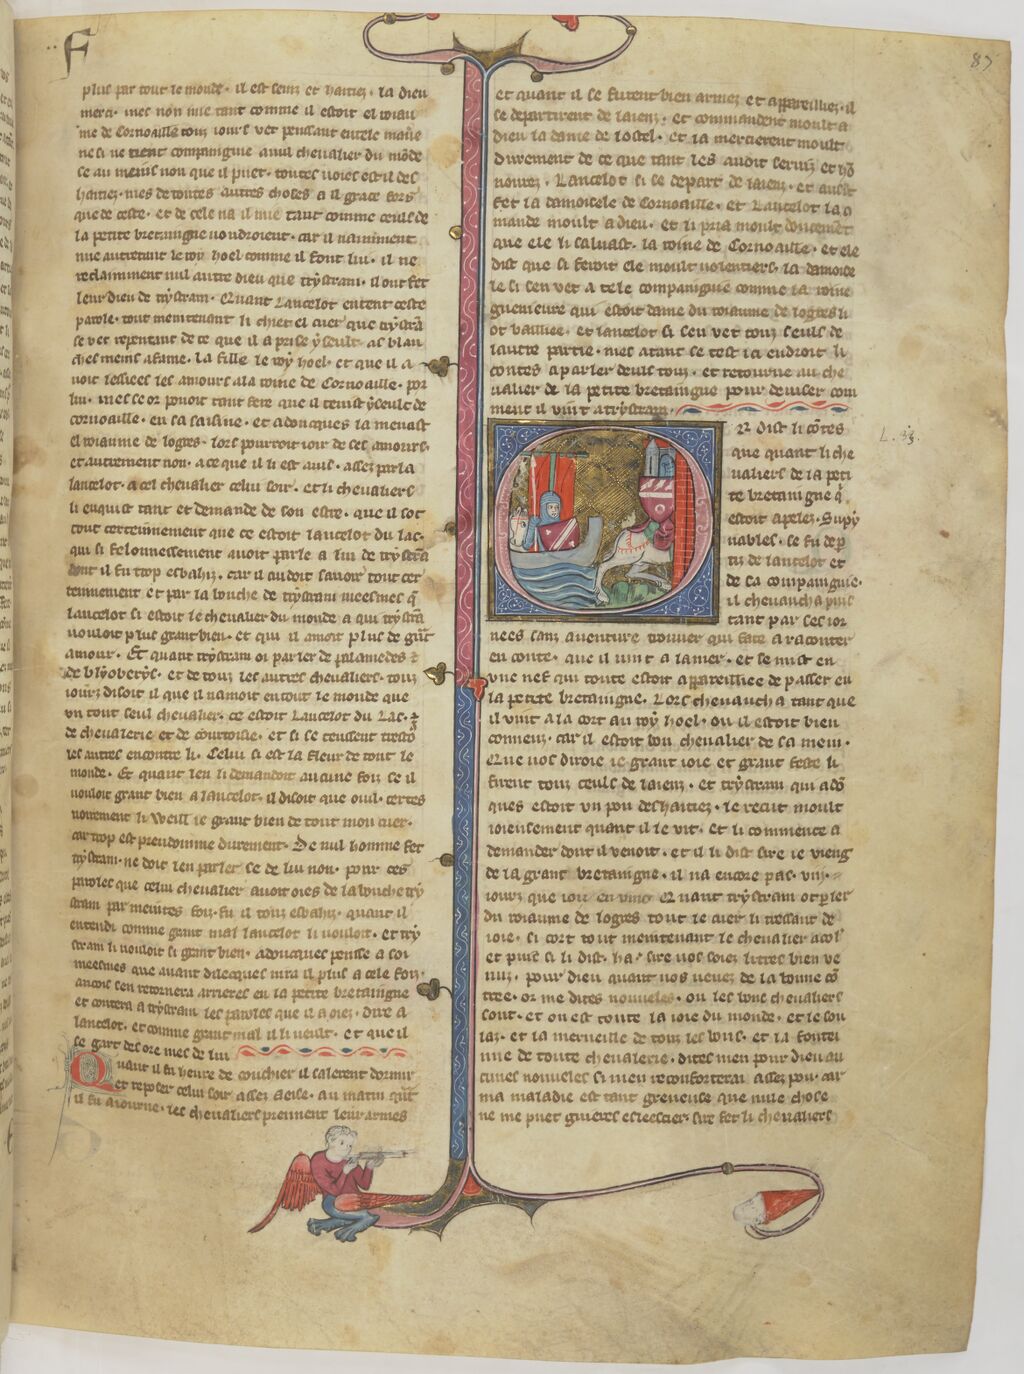 F
87
plus par tout le monde. il est seins et haitiez. la dieu
merci. mes non mie tant comme il estoit el roiau
me de Cornoaille touz iours vet pensant en tele manie
ne si ne tient compaignie a nul chevalier du mōde
se au meins non que il puet. toutes uoies est il des
haitiez. mes de toutes autres choses a il grace fors
que de ceste. et de cele na il mie tant comme ceuls de
la petite bretaingne uoudroient. car il naimment
mie autretant le roy hoel comme il font lui. il ne
reclaimment nul autre dieu que trystram. il ont fet
leur dieu de trystram. Quant Lancelot entent ceste
parole. tout meintenant li chiet el cuer que trystrā
se vet repentant de ce que il a prise yseult as blan
ches meins a fame. la fille le roy hoel. et que il a
uoit lessiees les amours a la roine de Cornoaille. por
lui. mes se or pouoit tant fere que il tenist yseult de
cornoaille. en sa saisine. et adonques la menast
el roiaume de logres. lors pourroit ioir de ses amours.
et autrement non. a ce que il li est auis. assez parla
lancelot. a cel chevalier celui soir. et li chevaliers
li enquist tant et demande de son estre. que il sot
tout certeinnement que ce estoit lancelot du lac.
qui si felonnessement auoit parle a lui de trystrā
dont il fu trop esbahiz. car il cuidoit sauoir tout cer
teinnement et par la bouche de trystram meesmes q̄
lancelot si estoit le chevalier du monde a qui trystrā
uouloit plus grant bien. et qui il amoit plus de grāt
amour. Et quant trystram oi parler de palamedes ⁊
de blyoberys. et de touz les autres chevaliers. touz
iourz disoit il que il namoit en tout le monde que
un tout seul chevalier. ce estoit Lancelot du Lac. ⁊
de chevalerie et de courtoisie. et si se teussent trestoꝰ
les autres encontre li. Celui si est la fleur de tout le
monde. Et quant len li demandoit aucune foiz se il
uouloit grant bien a lancelot. il disoit que oïl. certes
uoirement li weill ie grant bien de tout mon cuer.
car trop est preudomme durement. De nul homme fet
trystram. ne doit len parler se de lui non. pour ces
paroles que celui chevalier auoit oies de la bouche try
stram par meintes foiz. fu il touz esbahiz. quant il
entendi comme grant mal lancelot li uouloit. et try
stram li uouloit si grant bien. adoncques pensse a soi
meesmes que auant dilecques nira il plus a cele foiz.
ancois sen retornera arrieres en la petite bretaingne
et contera a trystram les paroles que il a oiez. dire a
lancelot. et comme grant mal il li ueult. et que il
se gart des ore mes de lui
Quant il fu heure de couchier il salerent dormir
et reposer celui soir assez a eise. au matin qn̄t
il fu aiourne. les chevaliers prennent leur armes
et quant il se furent bien armez et appareilliez. il
se departirent de laienz. et commandent moult a
dieu la dame de lostel. et la mercierent moult
durement de ce que tant les auoit seruiz et hō
nourez. Lancelot si se depart de laienz. et ausi
fet la damoisele de Cornoaille. et Lancelot la cō
mande moult a dieu. et li pria moult doucement
que ele li saluast. la roine de Cornoaille. et ele
dist que si feroit ele moult uolentiers. la damoise
le si sen vet a tele compaignie comme la roine
guenieure qui estoit dame du roiaume de logres li
ot bailliee. et lancelot si sen vet touz seuls de
lautre partie. mes atant se test ia endroit li
contes a parler deuls touz. et retourne au che
ualier de la petite bretaingne pour deuiser com
ment il uint a trystram.
Or dist li cōtes
que quant li che
ualiers de la peti
te bretaingne q̄
estoit apelez. Supy
nables. se fu dep̄
tiz de lancelot et
de sa compaingnie.
il chevaucha puis
tant par ses ior
nees sanz auenture trouuer qui face a raconter
en conte. que il uint a la mer. et se mist en
une nef qui toute estoit appareilliee de passer en
la petite bretaingne. Lors chevaucha tant que
il uint a la cort au roy hoel. ou il estoit bien
conneuz. car il estoit bon chevalier de sa mein.
Que uos diroie ie grant ioie et grant feste li
firent touz ceuls de laienz. et trystram qui adō
ques estoit un pou deshaitiez. le recut moult
ioieusement quant il le vit. et li commence a
demander dont il venoit. et il li dist sire ie vieng
de la grant bretaingne. il na encore pas. viij.
iourz que ioie en uing Quant trystram ot parler
du roiaume de logres tout le cuer li tressaut de
ioie. si cort tout meintenant le chevalier acol̄
et puis si li dist. ha. sire uos soiez li tres bien ve
nuz. pour dieu quant uos uenez de la bonne cō
tree. or me dites nouueles. ou les bons chevaliers
sont. et ou est toute la ioie du monde. et le sou
laz. et la merueille de touz les bons. et la fontei
nne de toute chevalerie. dites men pour dieu au
cunes nouueles si men reconforterai assez pou. car
ma maladie est tant greueuse que nule chose
ne me puet guieres esleescier. sire fet li chevaliers